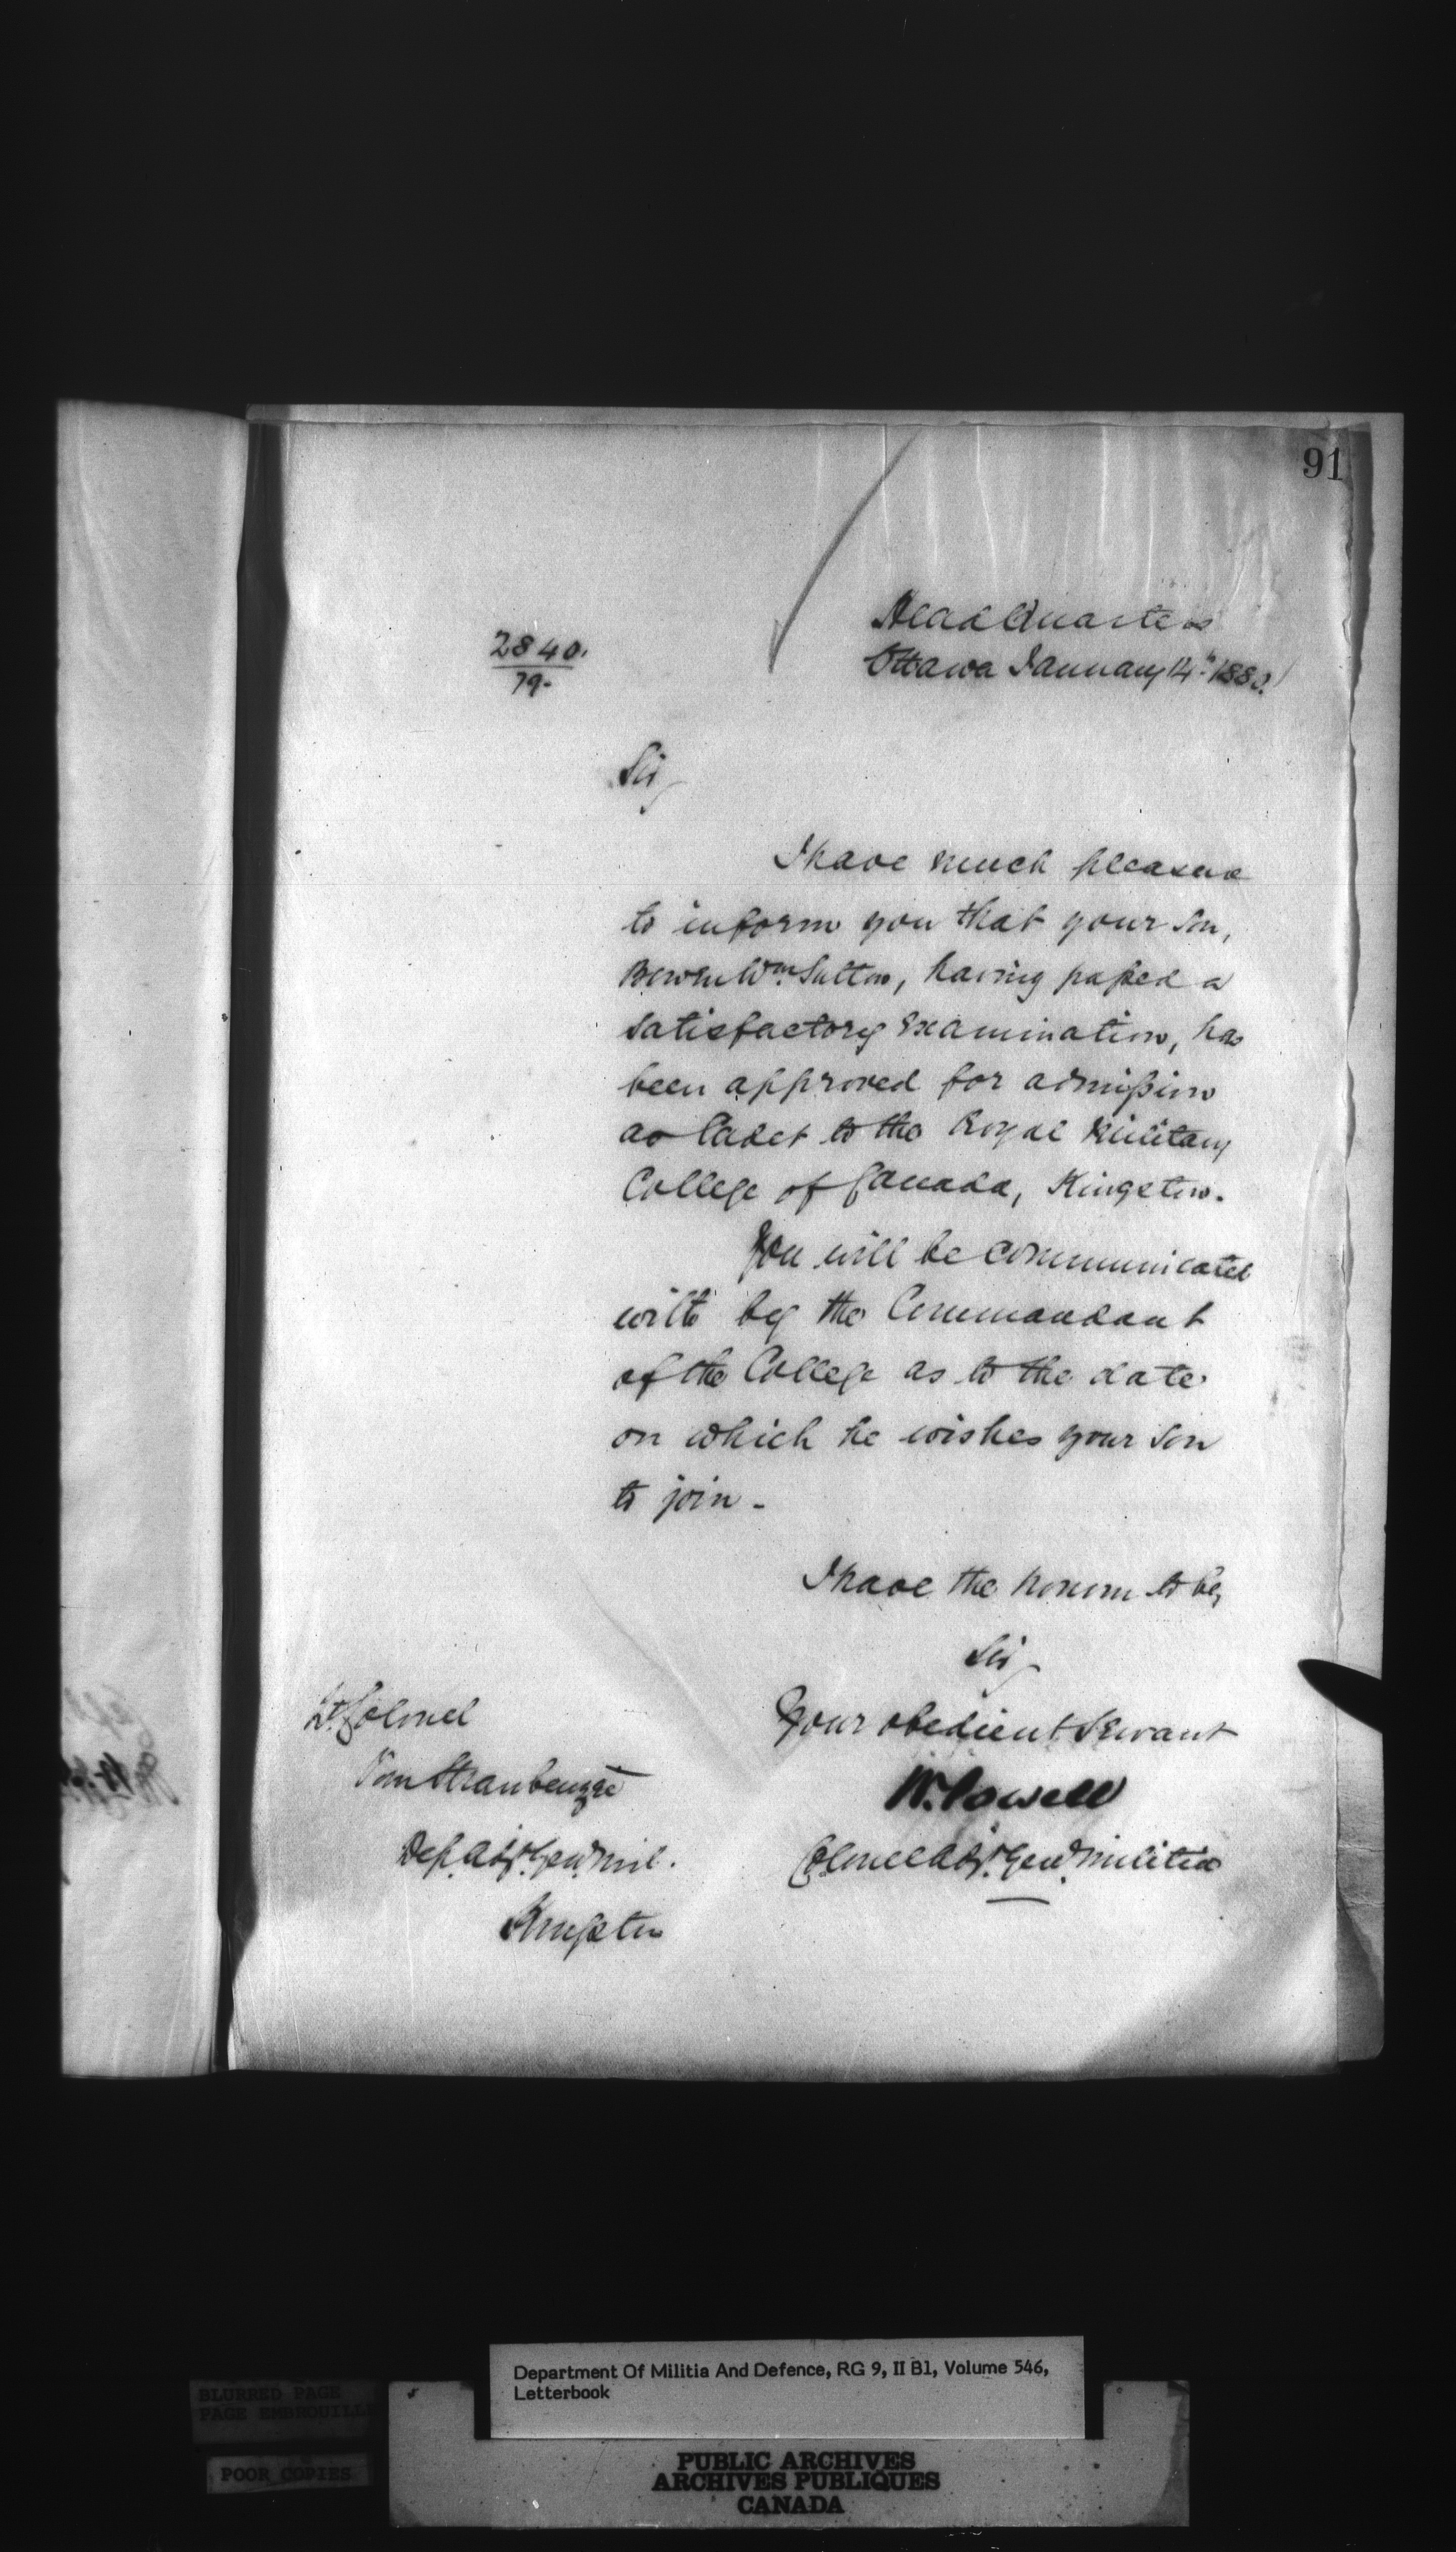 91
Head Quarters
Ottawa January 14th 1880.
2840.
79.
Sir,
I have much pleasure
to inform you that your son,
Bowen Wm. Sutton, having passed a
satisfactory examination, has
been approved for admission
as Cadet to the Royal Military
College of Canada, Kingston.
You will be communicated
with by the Commandant
of the College as to the date
on which he wishes your son
to join -
I have the honour to be,
Sir,
Your obedient Servant
W. Powell
Colonel Adjt. Genl. Militia
Lt. Colonel
Van Straubenzee
Dep. Adjt. Genl. Mil.
Kingston
Department Of Militia And Defence, RG 9, II B1, Volume 546,
Letterbook
BLURRED PAGE
PAGE EMBROUILLÉ
POOR COPIES
PUBLIC ARCHIVES
ARCHIVES PUBLIQUES
CANADA